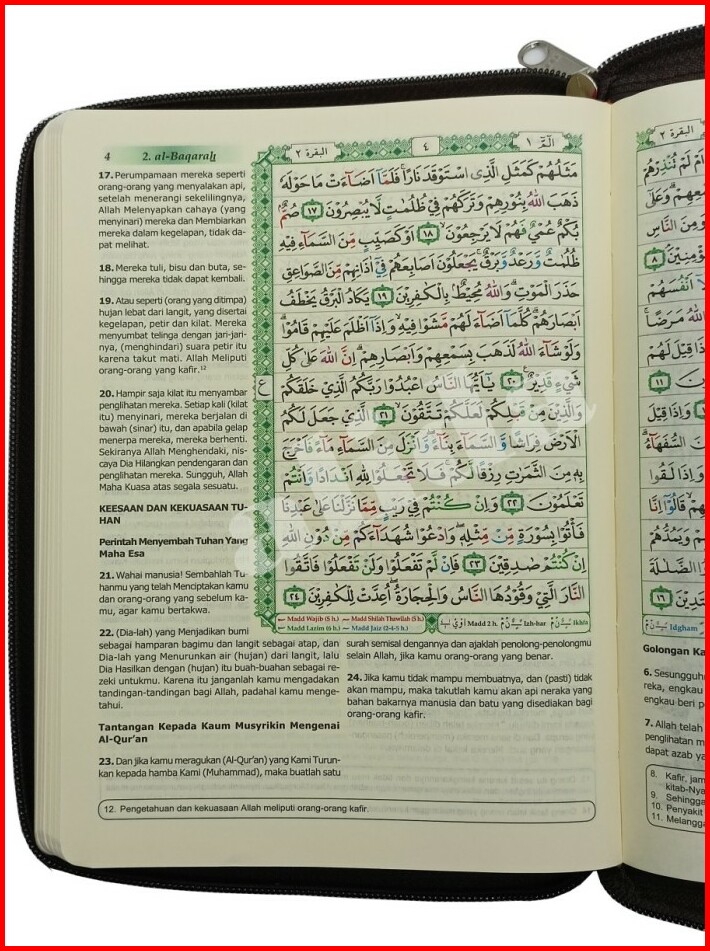 4 2. al-Baqarah
17. Perumpamaan mereka seperti
orang-orang yang menyalakan api,
setelah menerangi sekelilingnya,
Allah Melenyapkan cahaya (yang
menyinari) mereka dan Membiarkan
mereka dalam kegelapan, tidak da-
pat melihat.
18. Mereka tuli, bisu dan buta, se-
hingga mereka tidak dapat kembali.
19. Atau seperti (orang yang ditimpa)
hujan lebat dari langit, yang disertai
kegelapan, petir dan kilat. Mereka
menyumbat telinga dengan jari-jari-
nya, (menghindari) suara petir itu
karena takut mati. Allah Meliputi
orang-orang yang kafir.¹²
20. Hampir saja kilat itu menyambar
penglihatan mereka. Setiap kali (kilat
itu) menyinari, mereka berjalan di
bawah (sinar) itu, dan apabila gelap
menerpa mereka, mereka berhenti.
Sekiranya Allah Menghendaki, nis-
caya Dia Hilangkan pendengaran dan
penglihatan mereka. Sungguh, Allah
Maha Kuasa atas segala sesuatu.
KEESAAN DAN KEKUASAAN TU-
HAN
Perintah Menyembah Tuhan Yang
Maha Esa
21. Wahai manusia! Sembahlah Tu-
hanmu yang telah Menciptakan kamu
dan orang-orang yang sebelum ka-
mu, agar kamu bertakwa.
22. (Dia-lah) yang Menjadikan bumi
sebagai hamparan bagimu dan langit sebagai atap, dan
Dia-lah yang Menurunkan air (hujan) dari langit, lalu
Dia Hasilkan dengan (hujan) itu buah-buahan sebagai re-
zeki untukmu. Karena itu janganlah kamu mengadakan
tandingan-tandingan bagi Allah, padahal kamu menge-
tahui.
Tantangan Kepada Kaum Musyrikin Mengenai
Al-Qur'an
23. Dan jika kamu meragukan (Al-Qur'an) yang Kami Turun-
kan kepada hamba Kami (Muhammad), maka buatlah satu
surah semisal dengannya dan ajaklah penolong-penolongmu
selain Allah, jika kamu orang-orang yang benar.
24. Jika kamu tidak mampu membuatnya, dan (pasti) tidak
akan mampu, maka takutlah kamu akan api neraka yang
bahan bakarnya manusia dan batu yang disediakan bagi
orang-orang kafir.
12. Pengetahuan dan kekuasaan Allah meliputi orang-orang kafir.
الٓمّٓ ١ ٤ البقرة ٢
مَثَلُهُمْ كَمَثَلِ الَّذِى اسْتَوْقَدَ نَارًا ۚ فَلَمَّآ اَضَاۤءَتْ مَا حَوْلَهٗ
ذَهَبَ اللّٰهُ بِنُوْرِهِمْ وَتَرَكَهُمْ فِيْ ظُلُمٰتٍ لَّا يُبْصِرُوْنَ ١٧ صُمٌّ ۢ
بُكْمٌ عُمْيٌ فَهُمْ لَا يَرْجِعُوْنَ ۙ ١٨ اَوْ كَصَيِّبٍ مِّنَ السَّمَاۤءِ فِيْهِ
ظُلُمٰتٌ وَّرَعْدٌ وَّبَرْقٌ ۚ يَجْعَلُوْنَ اَصَابِعَهُمْ فِيْٓ اٰذَانِهِمْ مِّنَ الصَّوَاعِقِ
حَذَرَ الْمَوْتِ ۗ وَاللّٰهُ مُحِيْطٌ ۢ بِالْكٰفِرِيْنَ ١٩ يَكَادُ الْبَرْقُ يَخْطَفُ
اَبْصَارَهُمْ ۗ كُلَّمَآ اَضَاۤءَ لَهُمْ مَّشَوْا فِيْهِ ۙ وَاِذَآ اَظْلَمَ عَلَيْهِمْ قَامُوْا ۗ
وَلَوْ شَاۤءَ اللّٰهُ لَذَهَبَ بِسَمْعِهِمْ وَاَبْصَارِهِمْ ۗ اِنَّ اللّٰهَ عَلٰى كُلِّ
شَيْءٍ قَدِيْرٌ ٢٠ يٰٓاَيُّهَا النَّاسُ اعْبُدُوْا رَبَّكُمُ الَّذِيْ خَلَقَكُمْ
وَالَّذِيْنَ مِنْ قَبْلِكُمْ لَعَلَّكُمْ تَتَّقُوْنَ ۙ ٢١ الَّذِيْ جَعَلَ لَكُمُ
الْاَرْضَ فِرَاشًا وَّالسَّمَاۤءَ بِنَاۤءً ۖ وَّاَنْزَلَ مِنَ السَّمَاۤءِ مَاۤءً فَاَخْرَجَ
بِهٖ مِنَ الثَّمَرٰتِ رِزْقًا لَّكُمْ ۚ فَلَا تَجْعَلُوْا لِلّٰهِ اَنْدَادًا وَّاَنْتُمْ
تَعْلَمُوْنَ ٢٢ وَاِنْ كُنْتُمْ فِيْ رَيْبٍ مِّمَّا نَزَّلْنَا عَلٰى عَبْدِنَا
فَأْتُوْا بِسُوْرَةٍ مِّنْ مِّثْلِهٖ ۖ وَادْعُوْا شُهَدَاۤءَكُمْ مِّنْ دُوْنِ اللّٰهِ
اِنْ كُنْتُمْ صٰدِقِيْنَ ٢٣ فَاِنْ لَّمْ تَفْعَلُوْا وَلَنْ تَفْعَلُوْا فَاتَّقُوا
النَّارَ الَّتِيْ وَقُوْدُهَا النَّاسُ وَالْحِجَارَةُ ۖ اُعِدَّتْ لِلْكٰفِرِيْنَ ٢٤
ع
Madd Wajib (5 h.) Madd Shilah Thawilah (5 h.) Madd 2 h. Izh-har Ikhfa
Madd Lazim (6 h.) Madd Jaiz (2-4-5 h.)
البقرة ٢
Idgham
Golongan Ka
6. Sesungguh
reka, engkau
engkau beri p
7. Allah telah
penglihatan m
dapat azab ya
8. Kafir, jam
kitab-Nya
9. Sehingga
10. Penyakit
11. Melangga